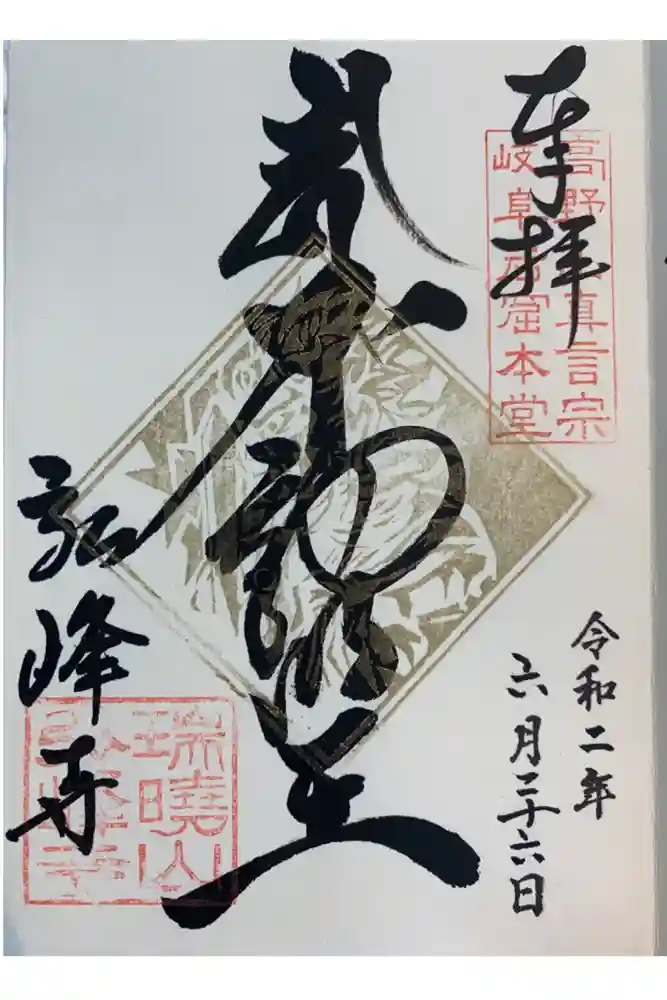 奉拝
高野山真言宗
岐阜石窟本堂
令和二年
六月二十六日
弘峰寺
瑞曉山
弘峰寺